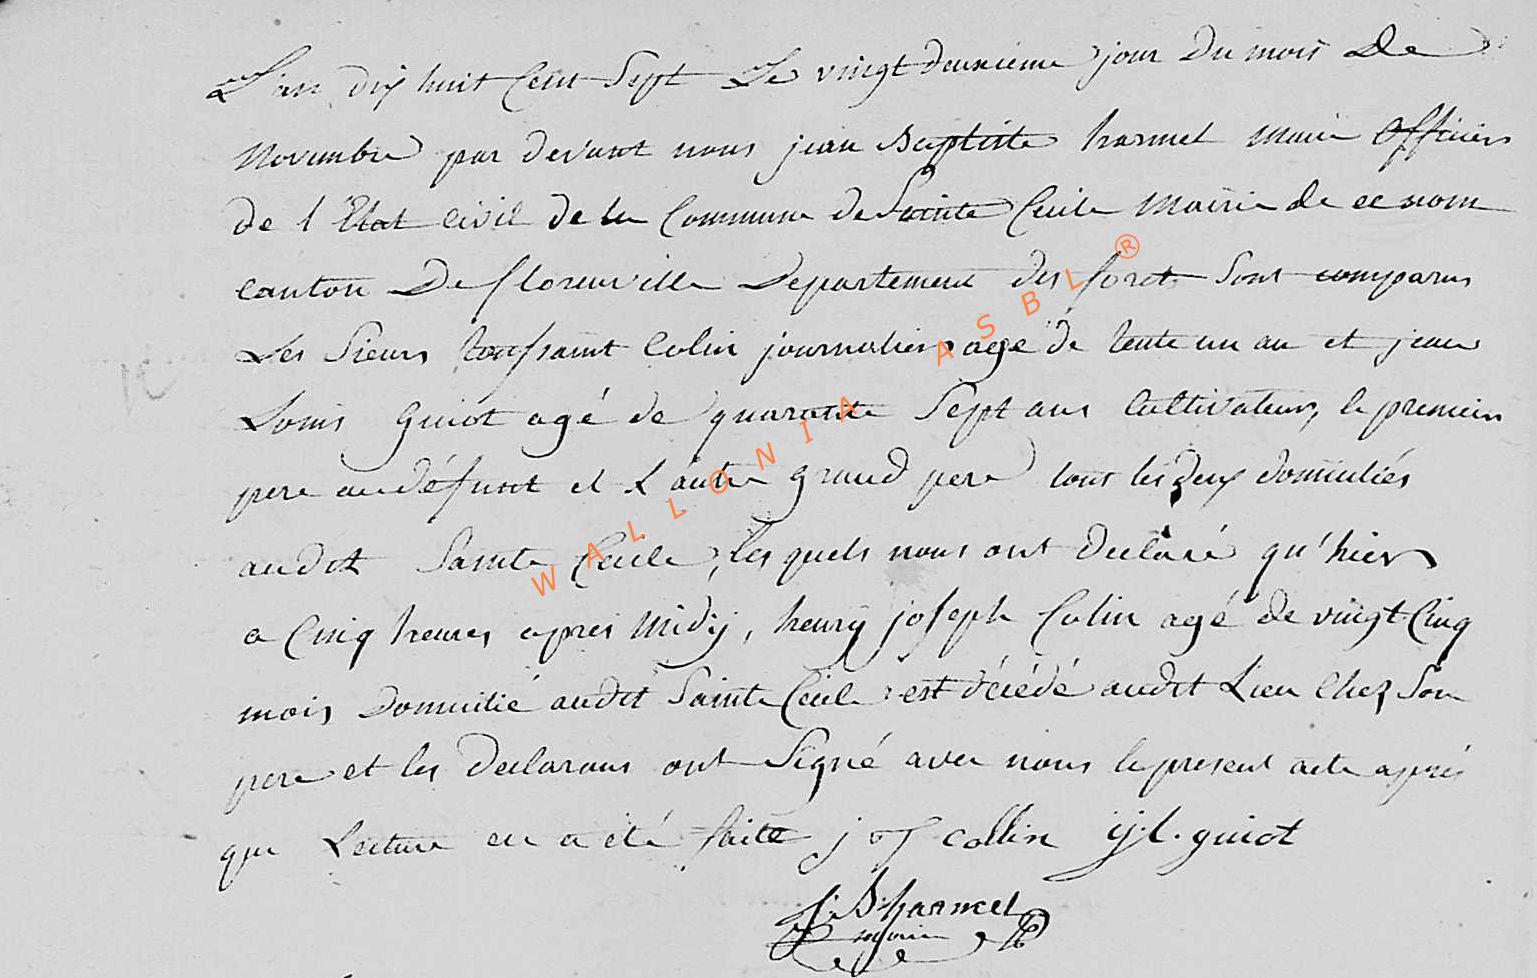 L'an dix huit Cent Sept Le vingt deuxieme jour Du mois De
Novembre par devant nous jean Baptiste harmel Maire Officier
de l'Etat Civil de la Commune de Sainte Cecile Mairie de ce nom
canton De florenville Departement des foret Sont comparus
Les Sieurs toussaint Colin journalier agé de tente un an et jean
Louis Guiot agé de quarante Sept ans Cultivateur, le premier
pere au défunt et L'autre grand pere tout les deux domiciliés
audit Sainte Cecile, les quels nous ont declaré qu'hier
a Cinq heures apres Midÿ, henrÿ joseph Colin agé de vingt Cinq
mois Domicilié audit Sainte Cecile est décédé audit Lieu Chez Son
pere et les Declarans ont Signé avec nous le present acte après
que Lecture en a eté faite j colin j.l. guiot
J.B. harmel
maire
WALLONIA ASBL ®